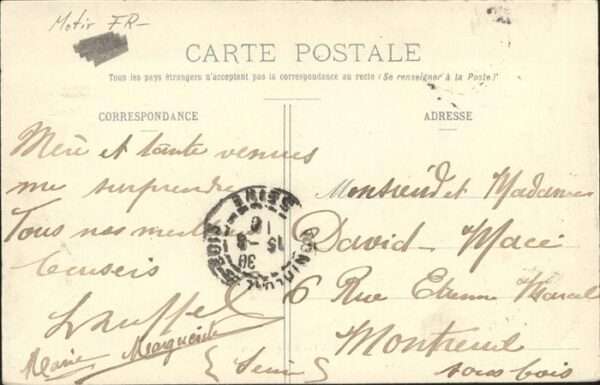 Motif FR-
CARTE POSTALE
Tous les pays étrangers n'acceptent pas la correspondance au recto (Se renseigner à la Poste)
CORRESPONDANCE
Mère et tante venues
me surprendre
Tous nos meil
baiseis
Marie Marguerite
ADRESSE
Monsieur et Madame
David-Macé
6 Rue Etienne Marcel
Montreuil
sous bois
(Seine)
15-8